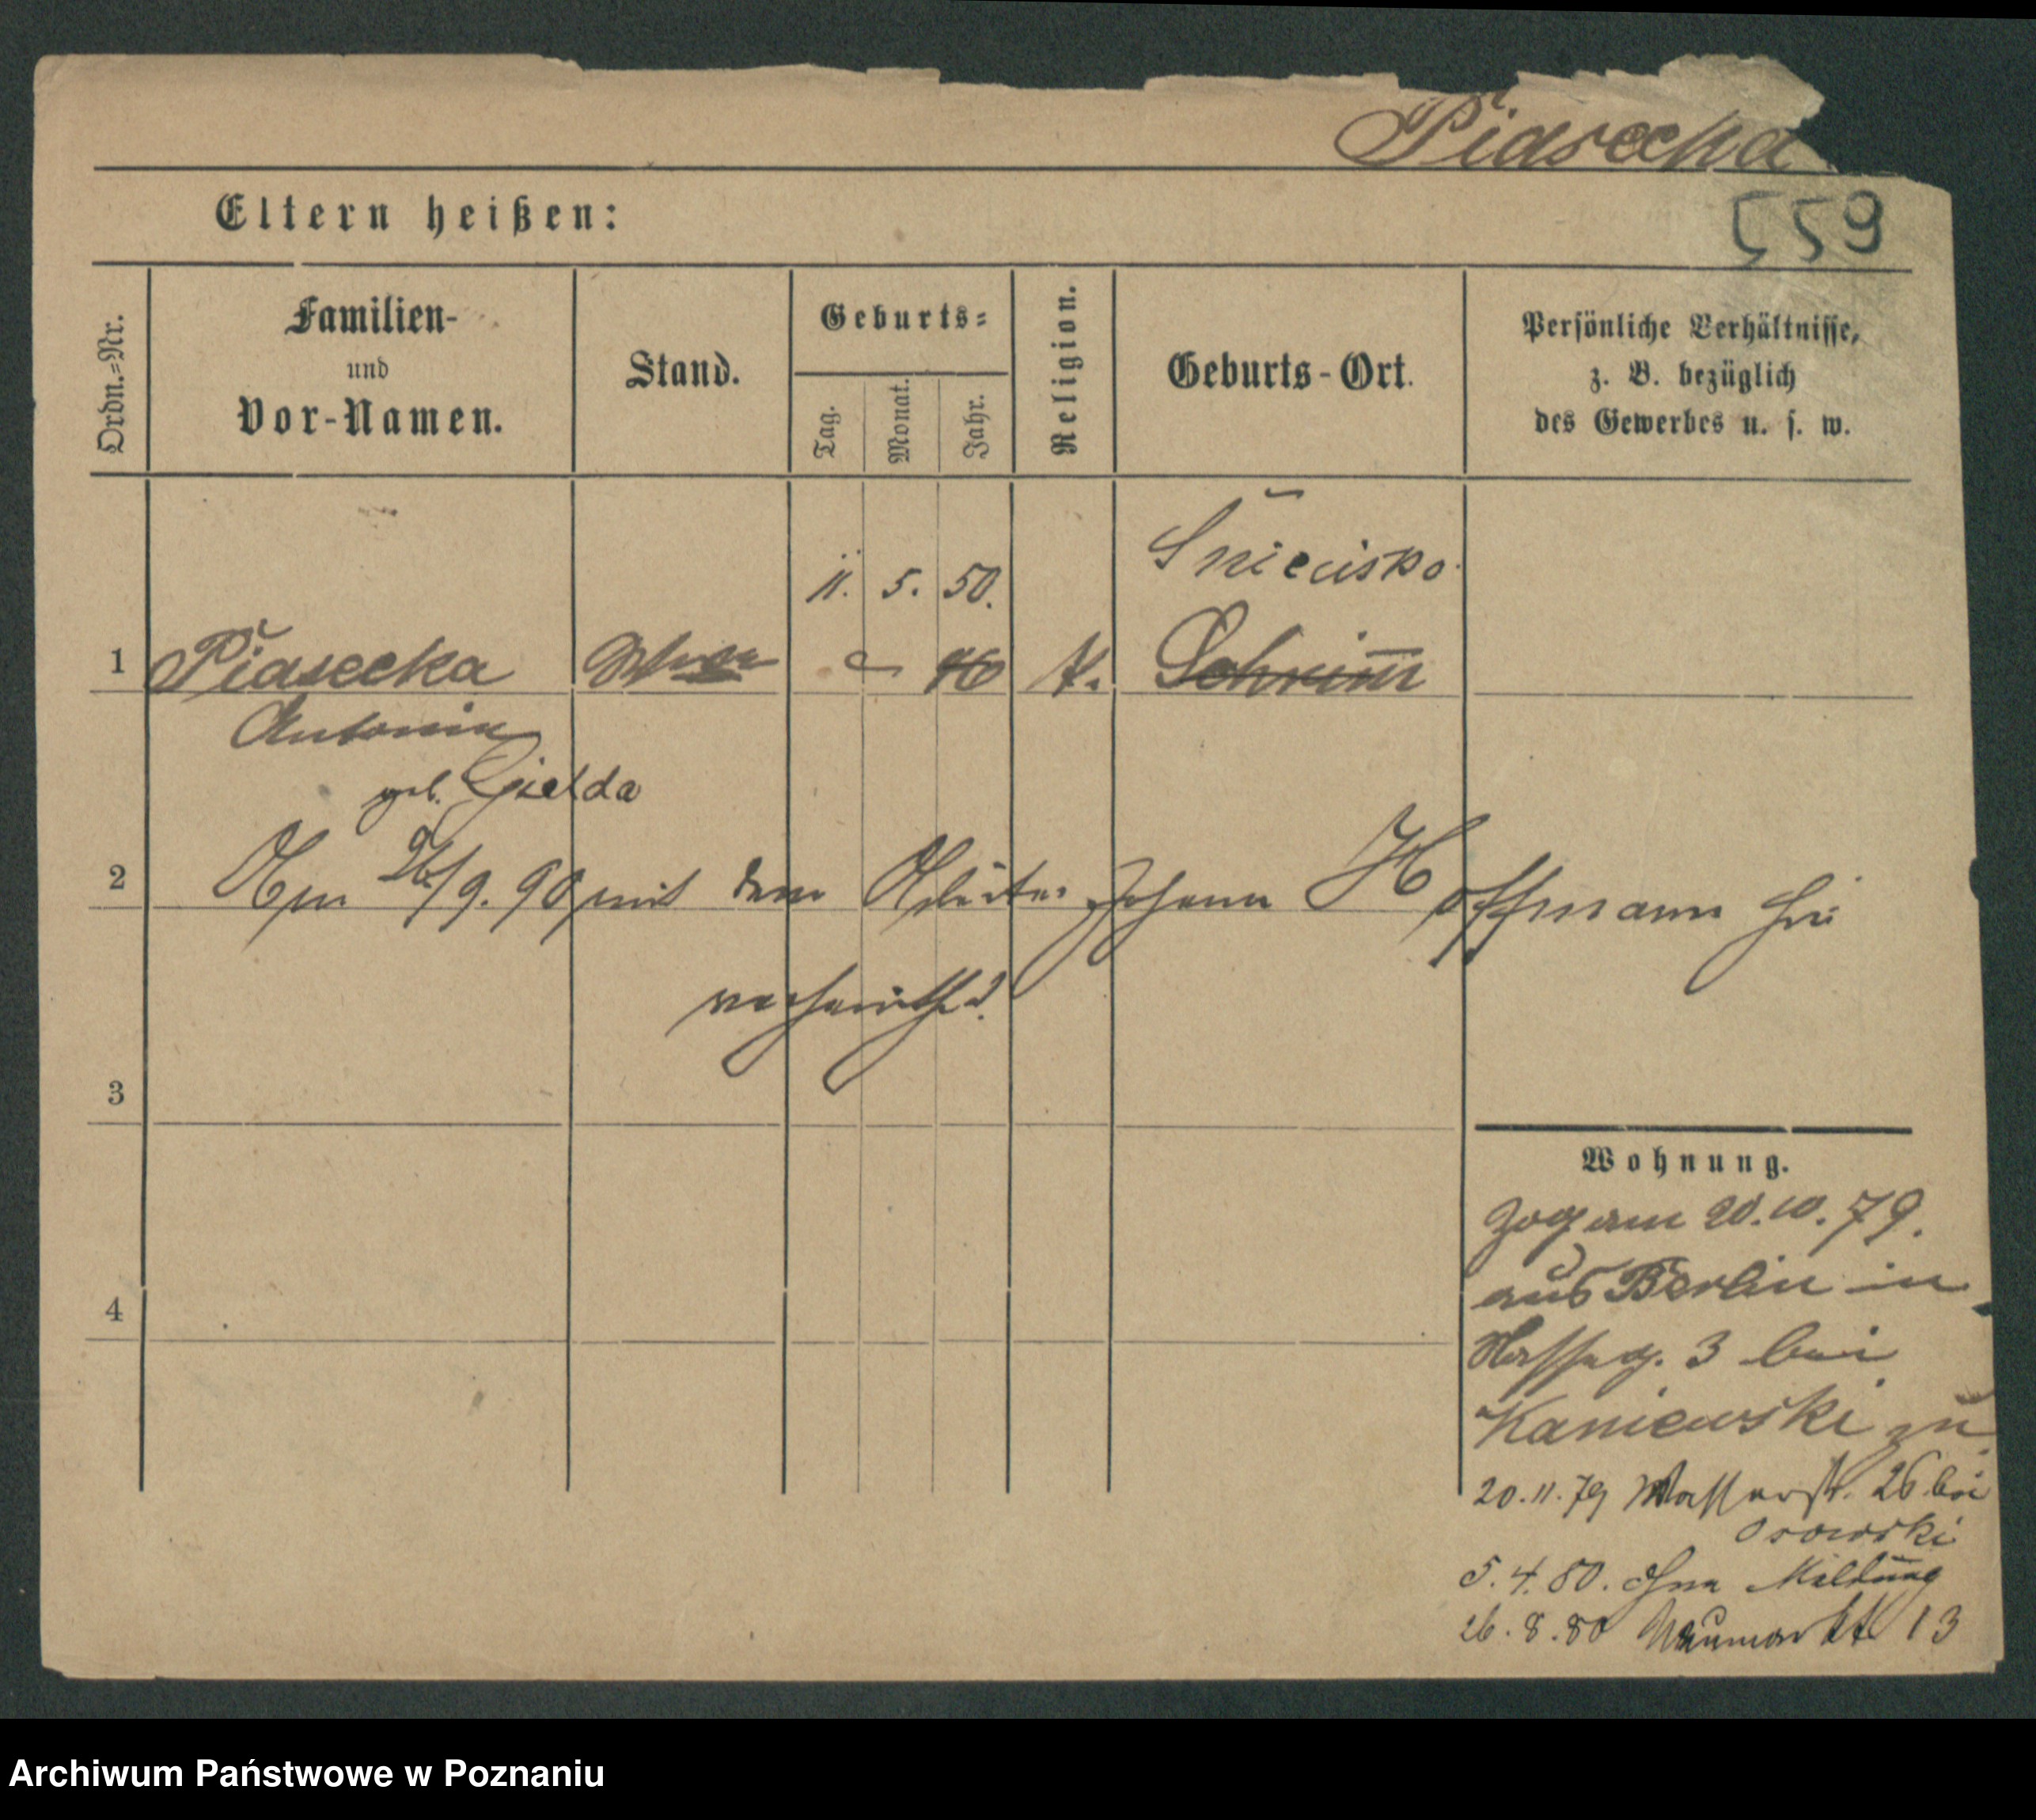 Piasecka
Eltern heißen:
559
Ordn.=Nr.
Familien-
und
Vor-Namen.
Stand.
Geburts=
Tag.
Monat.
Jahr.
Religion.
Geburts-Ort.
Persönliche Verhältnisse,
z. B. bezüglich
des Gewerbes u. s. w.
Sniecisko
11. 5. 50.
1 Piasecka 46 K. Schrimm
Antonia
geb. Gielda
2 Am 26/9. 90 mit dem Arbeiter Johann Hoffmann hier
verheirathet.
3
Wohnung.
Zog am 20.10.79.
aus Berlin in
3 bei
Kaniewski zu
4
20.11.79 Wasserstr. 26 bei
Osowski
5.4.80. ohne Meldung
26.8.80 Neumarkt 13
Archiwum Państwowe w Poznaniu